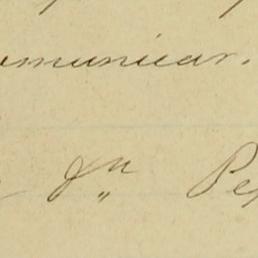 omunicar.
Jn Pe